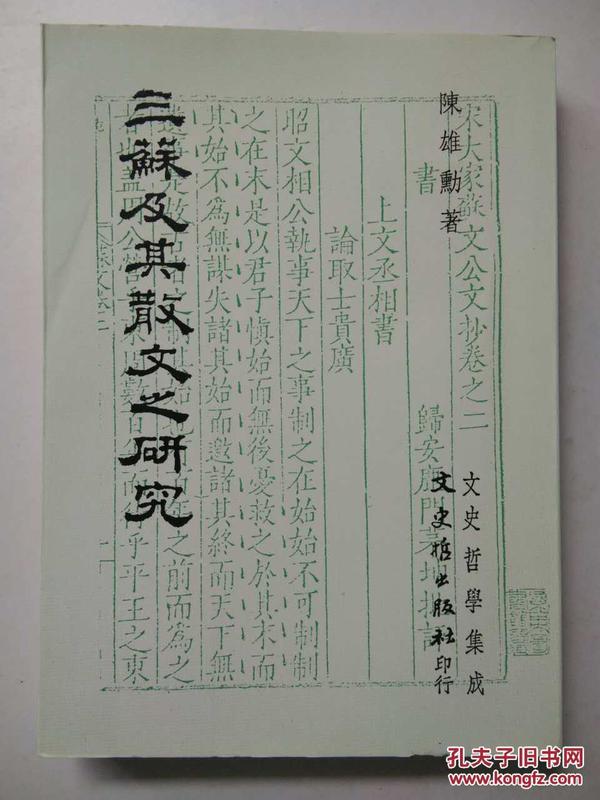 三蘇及其散文之研究
陳雄勳著
文史哲學集成
文史哲出版社印行
宋大家蘇文公文抄卷之二
歸安鹿門茅坤批評
書
上文丞相書
論取士貴廣
昭文相公執事天下之事制之在始始不可制制
之在末是以君子慎始而無後憂救之於其末而
其始不為無謀失諸其始而邀諸其終而天下無
之前而為之
乎平王之東
孔夫子旧书网
www.kongfz.com